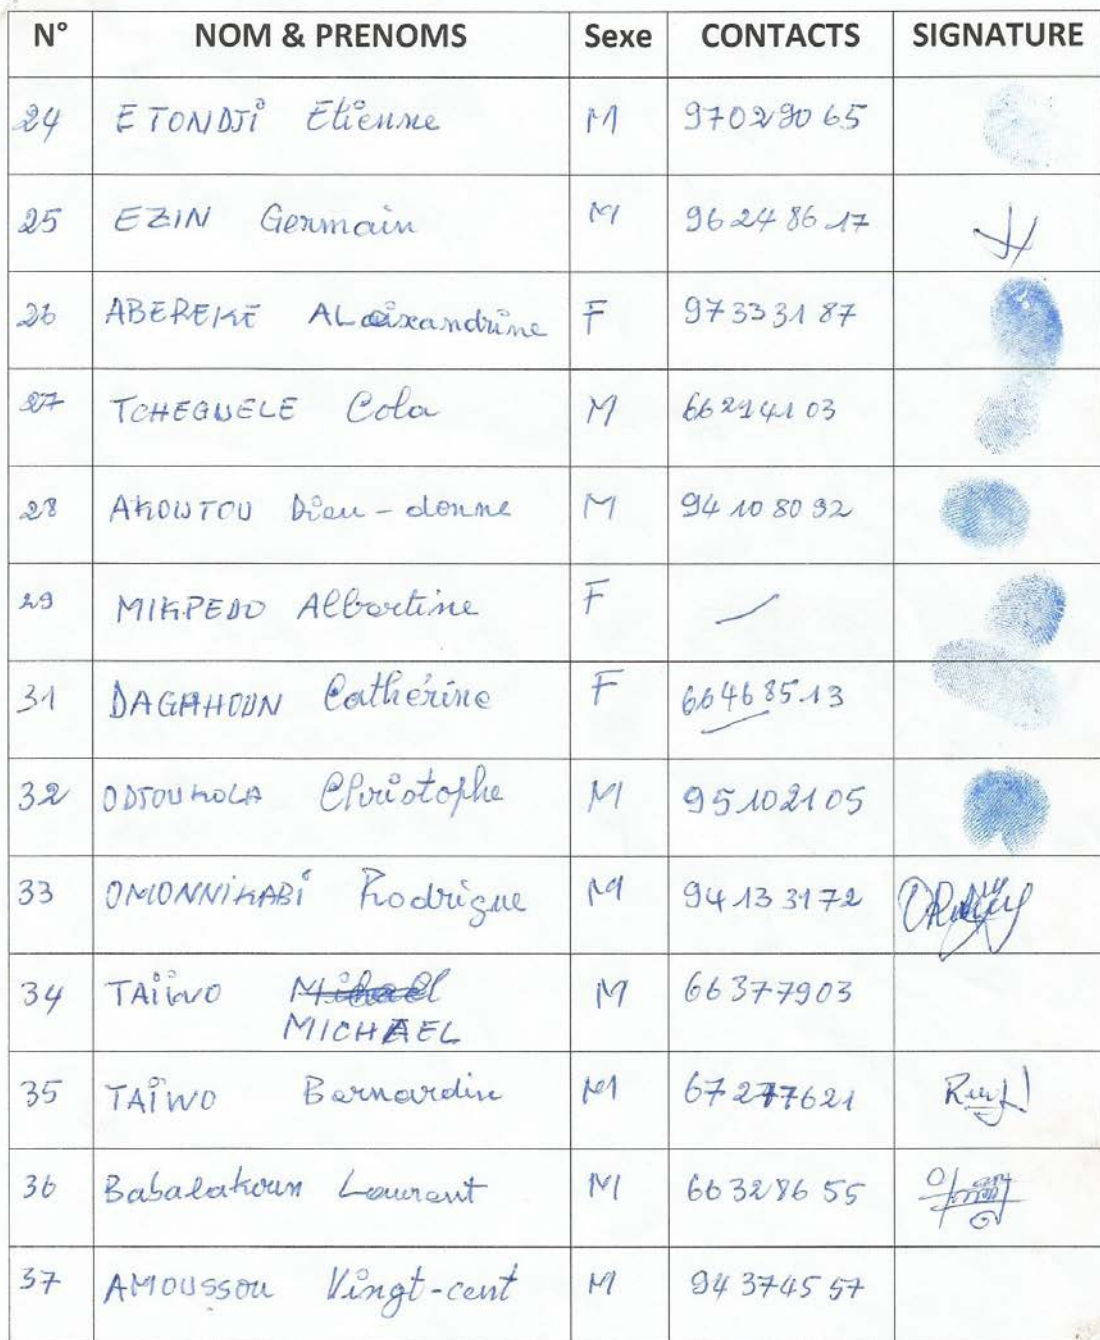 N° NOM & PRENOMS Sexe CONTACTS SIGNATURE
24 ETONDJI Etienne M 97029065
25 EZIN Germain M 96 24 86 17
26 ABEREKE ALaixandrine F 97 33 31 87
27 TCHEGUELE Cola M 66 29 41 03
28 AKOUTOU Dieu-donne M 94 10 80 92
29 MIKPEDO Albertine F
31 DAGAHOUN Cathérine F 66 46 85 13
32 ODJOUKOLA Christophe M 95 10 21 05
33 OMONNIKABI Rodrigue M 94 13 31 72
34 TAÏWO M 66 37 79 03
MICHAEL
35 TAÏWO Bernardin M 67 27 76 21
36 Babalakoun Laurent M 66 32 86 55
37 AMOUSSOU Vingt-cent M 94 37 45 57